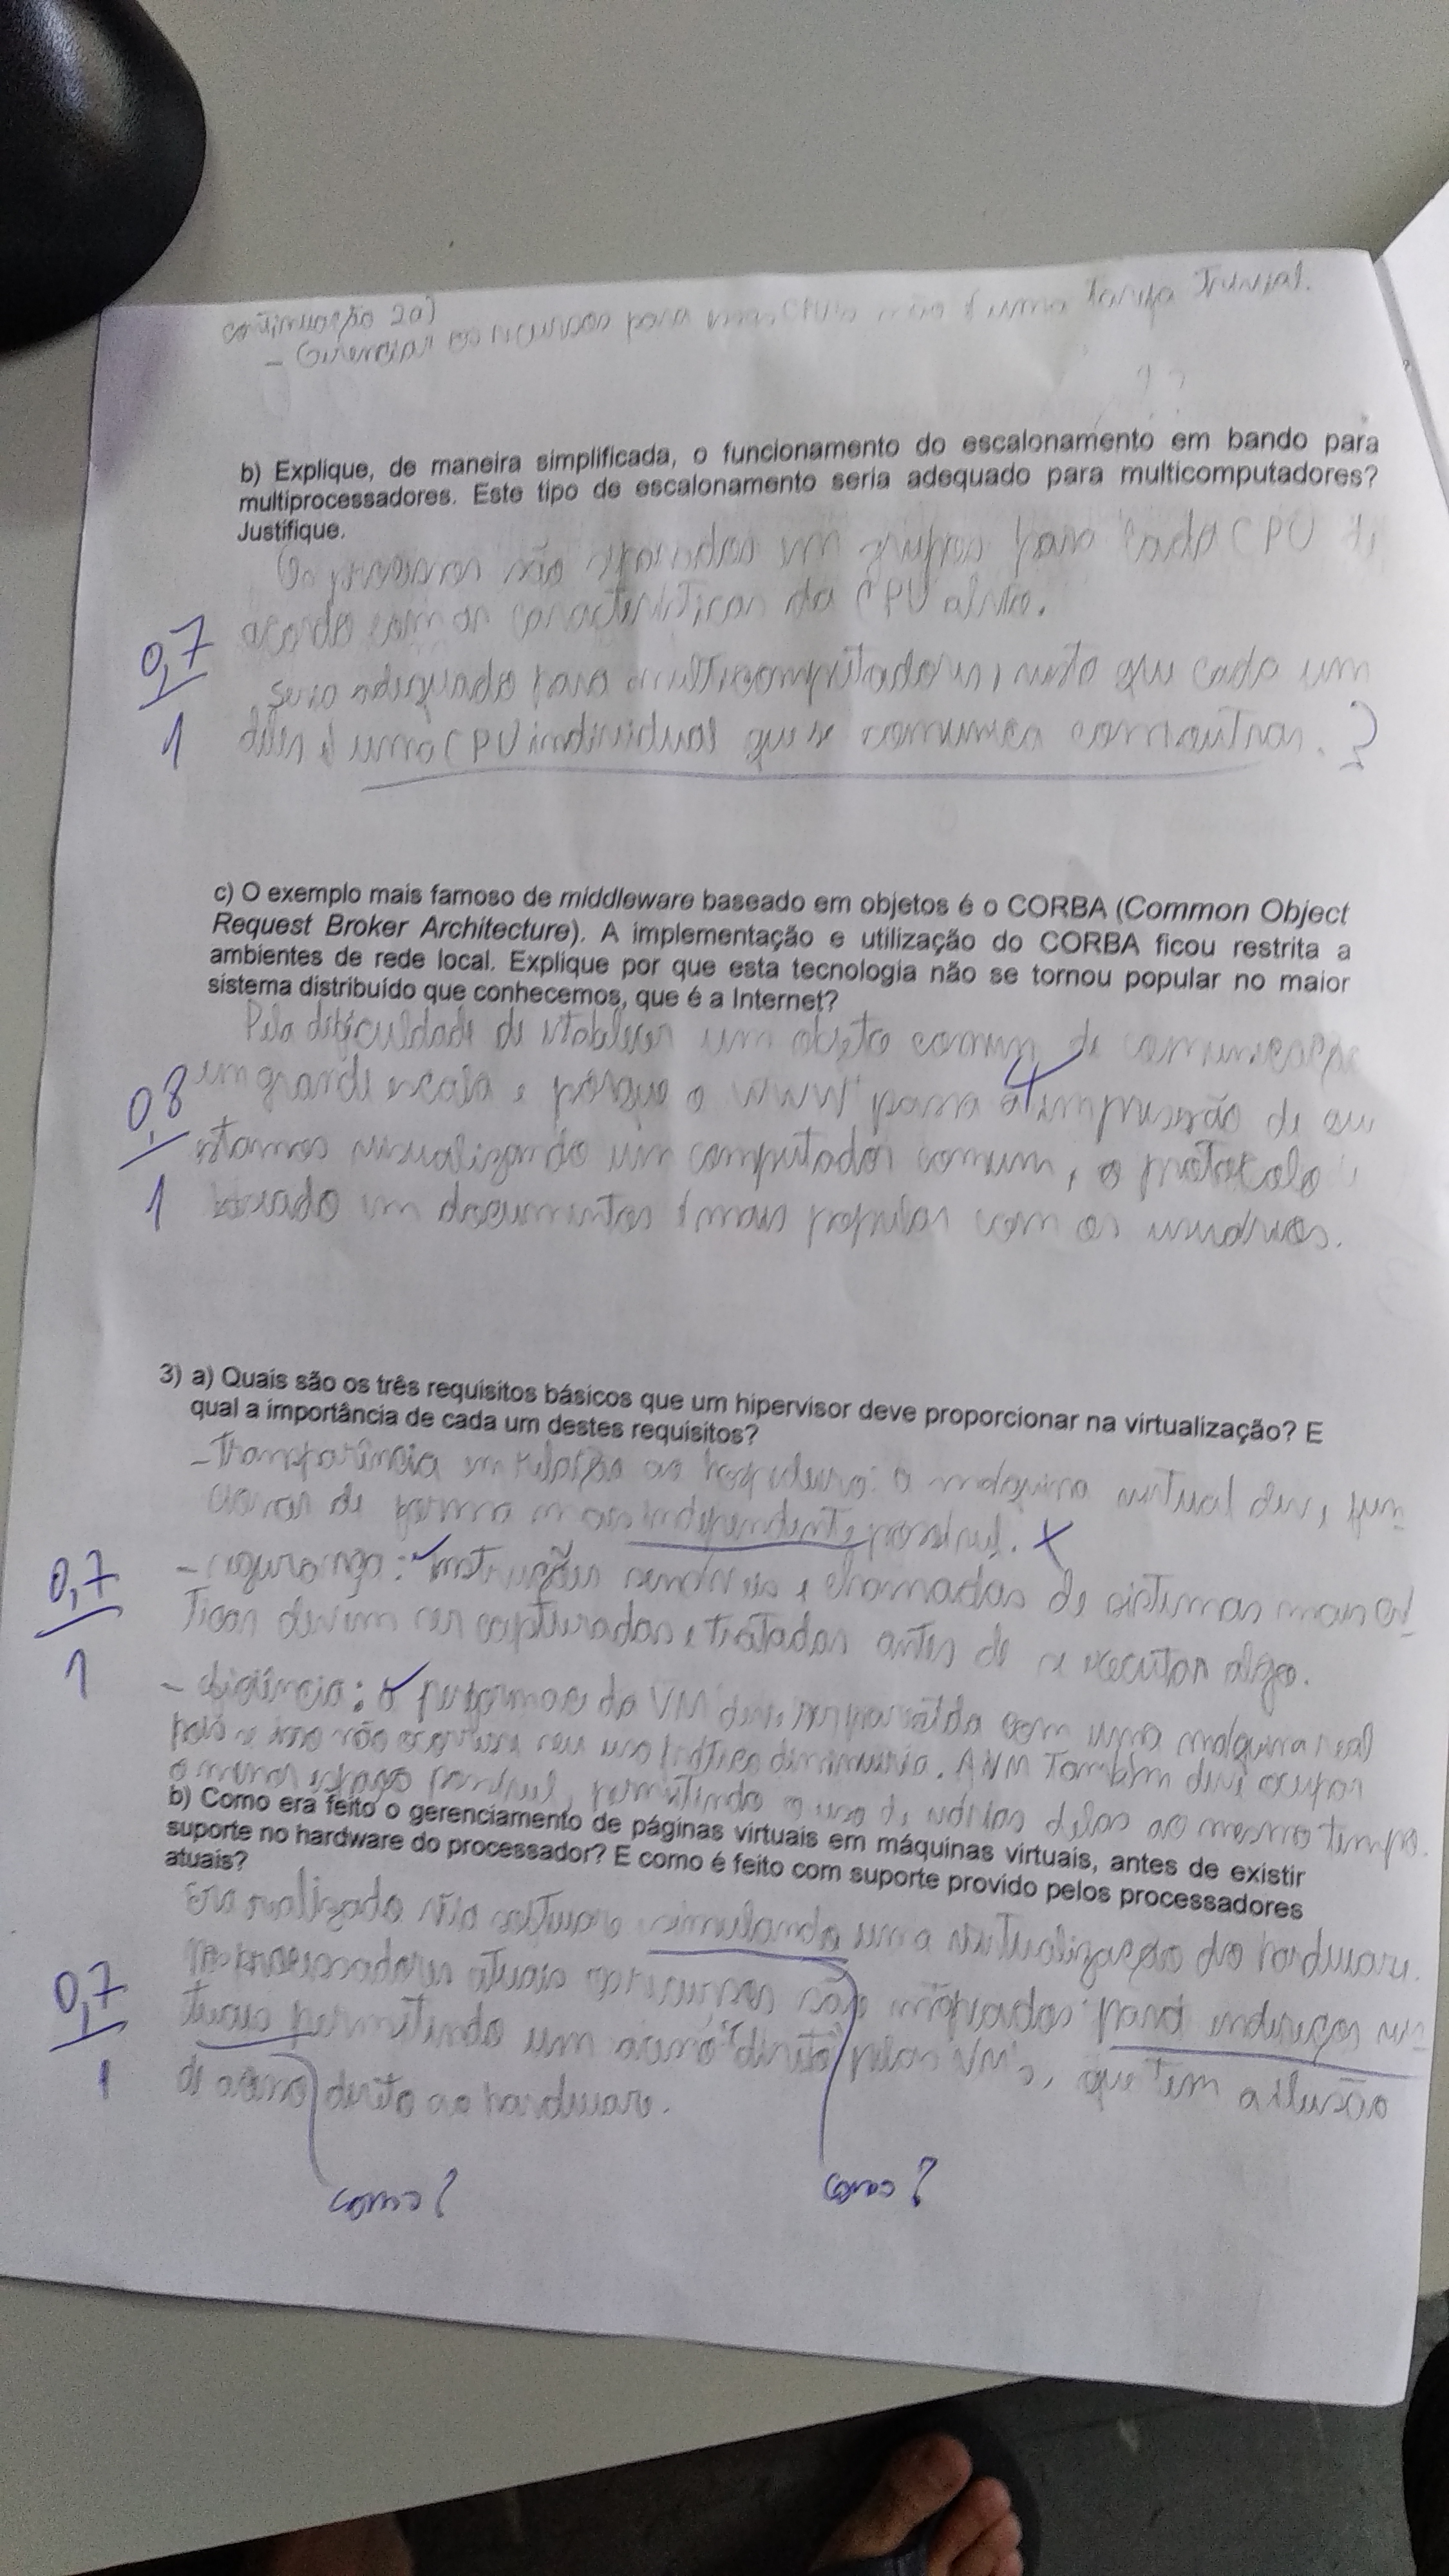 continuação 2a)
- Gerenciar os recursos para essas CPUs não é uma tarefa trivial.
b) Explique, de maneira simplificada, o funcionamento do escalonamento em bando para
multiprocessadores. Este tipo de escalonamento seria adequado para multicomputadores?
Justifique.
Os processos são separados em grupos para cada CPU de
acordo com as características da CPU alvo.
0,7
1
Seria adequado para multicomputadores, visto que cada um
deles é uma CPU individual que se comunica com outras. ?
c) O exemplo mais famoso de middleware baseado em objetos é o CORBA (Common Object
Request Broker Architecture). A implementação e utilização do CORBA ficou restrita a
ambientes de rede local. Explique por que esta tecnologia não se tornou popular no maior
sistema distribuído que conhecemos, que é a Internet?
Pela dificuldade de estabelecer um objeto comum de comunicação
em grande escala e porque o WWW passa a impressão de que
0,8
1
estamos visualizando um computador comum, o protocolo
baseado em documentos é mais popular com os usuários.
3) a) Quais são os três requisitos básicos que um hipervisor deve proporcionar na virtualização? E
qual a importância de cada um destes requisitos?
- Transparência em relação ao hardware: a máquina virtual deve fun
cionar de forma mais independente possível. X
0,7
1
- segurança: instruções sensíveis e chamadas de sistemas mais crí
ticas devem ser capturadas e tratadas antes de se executar algo.
- eficiência: a performace da VM deve ser parecida com uma máquina real
pois se isso não ocorresse seu uso prático diminuiria. A VM também deve ocupar
o menor espaço possível, permitindo o uso de várias delas ao mesmo tempo.
b) Como era feito o gerenciamento de páginas virtuais em máquinas virtuais, antes de existir
suporte no hardware do processador? E como é feito com suporte provido pelos processadores
atuais?
Era realizado via software, simulando uma virtualização do hardware.
0,7
1
Nos processadores atuais os recursos são mapeados para endereços vir
tuais permitindo um acesso "direto" pelas VM's, que tem a ilusão
de acesso direto ao hardware.
como?
como?